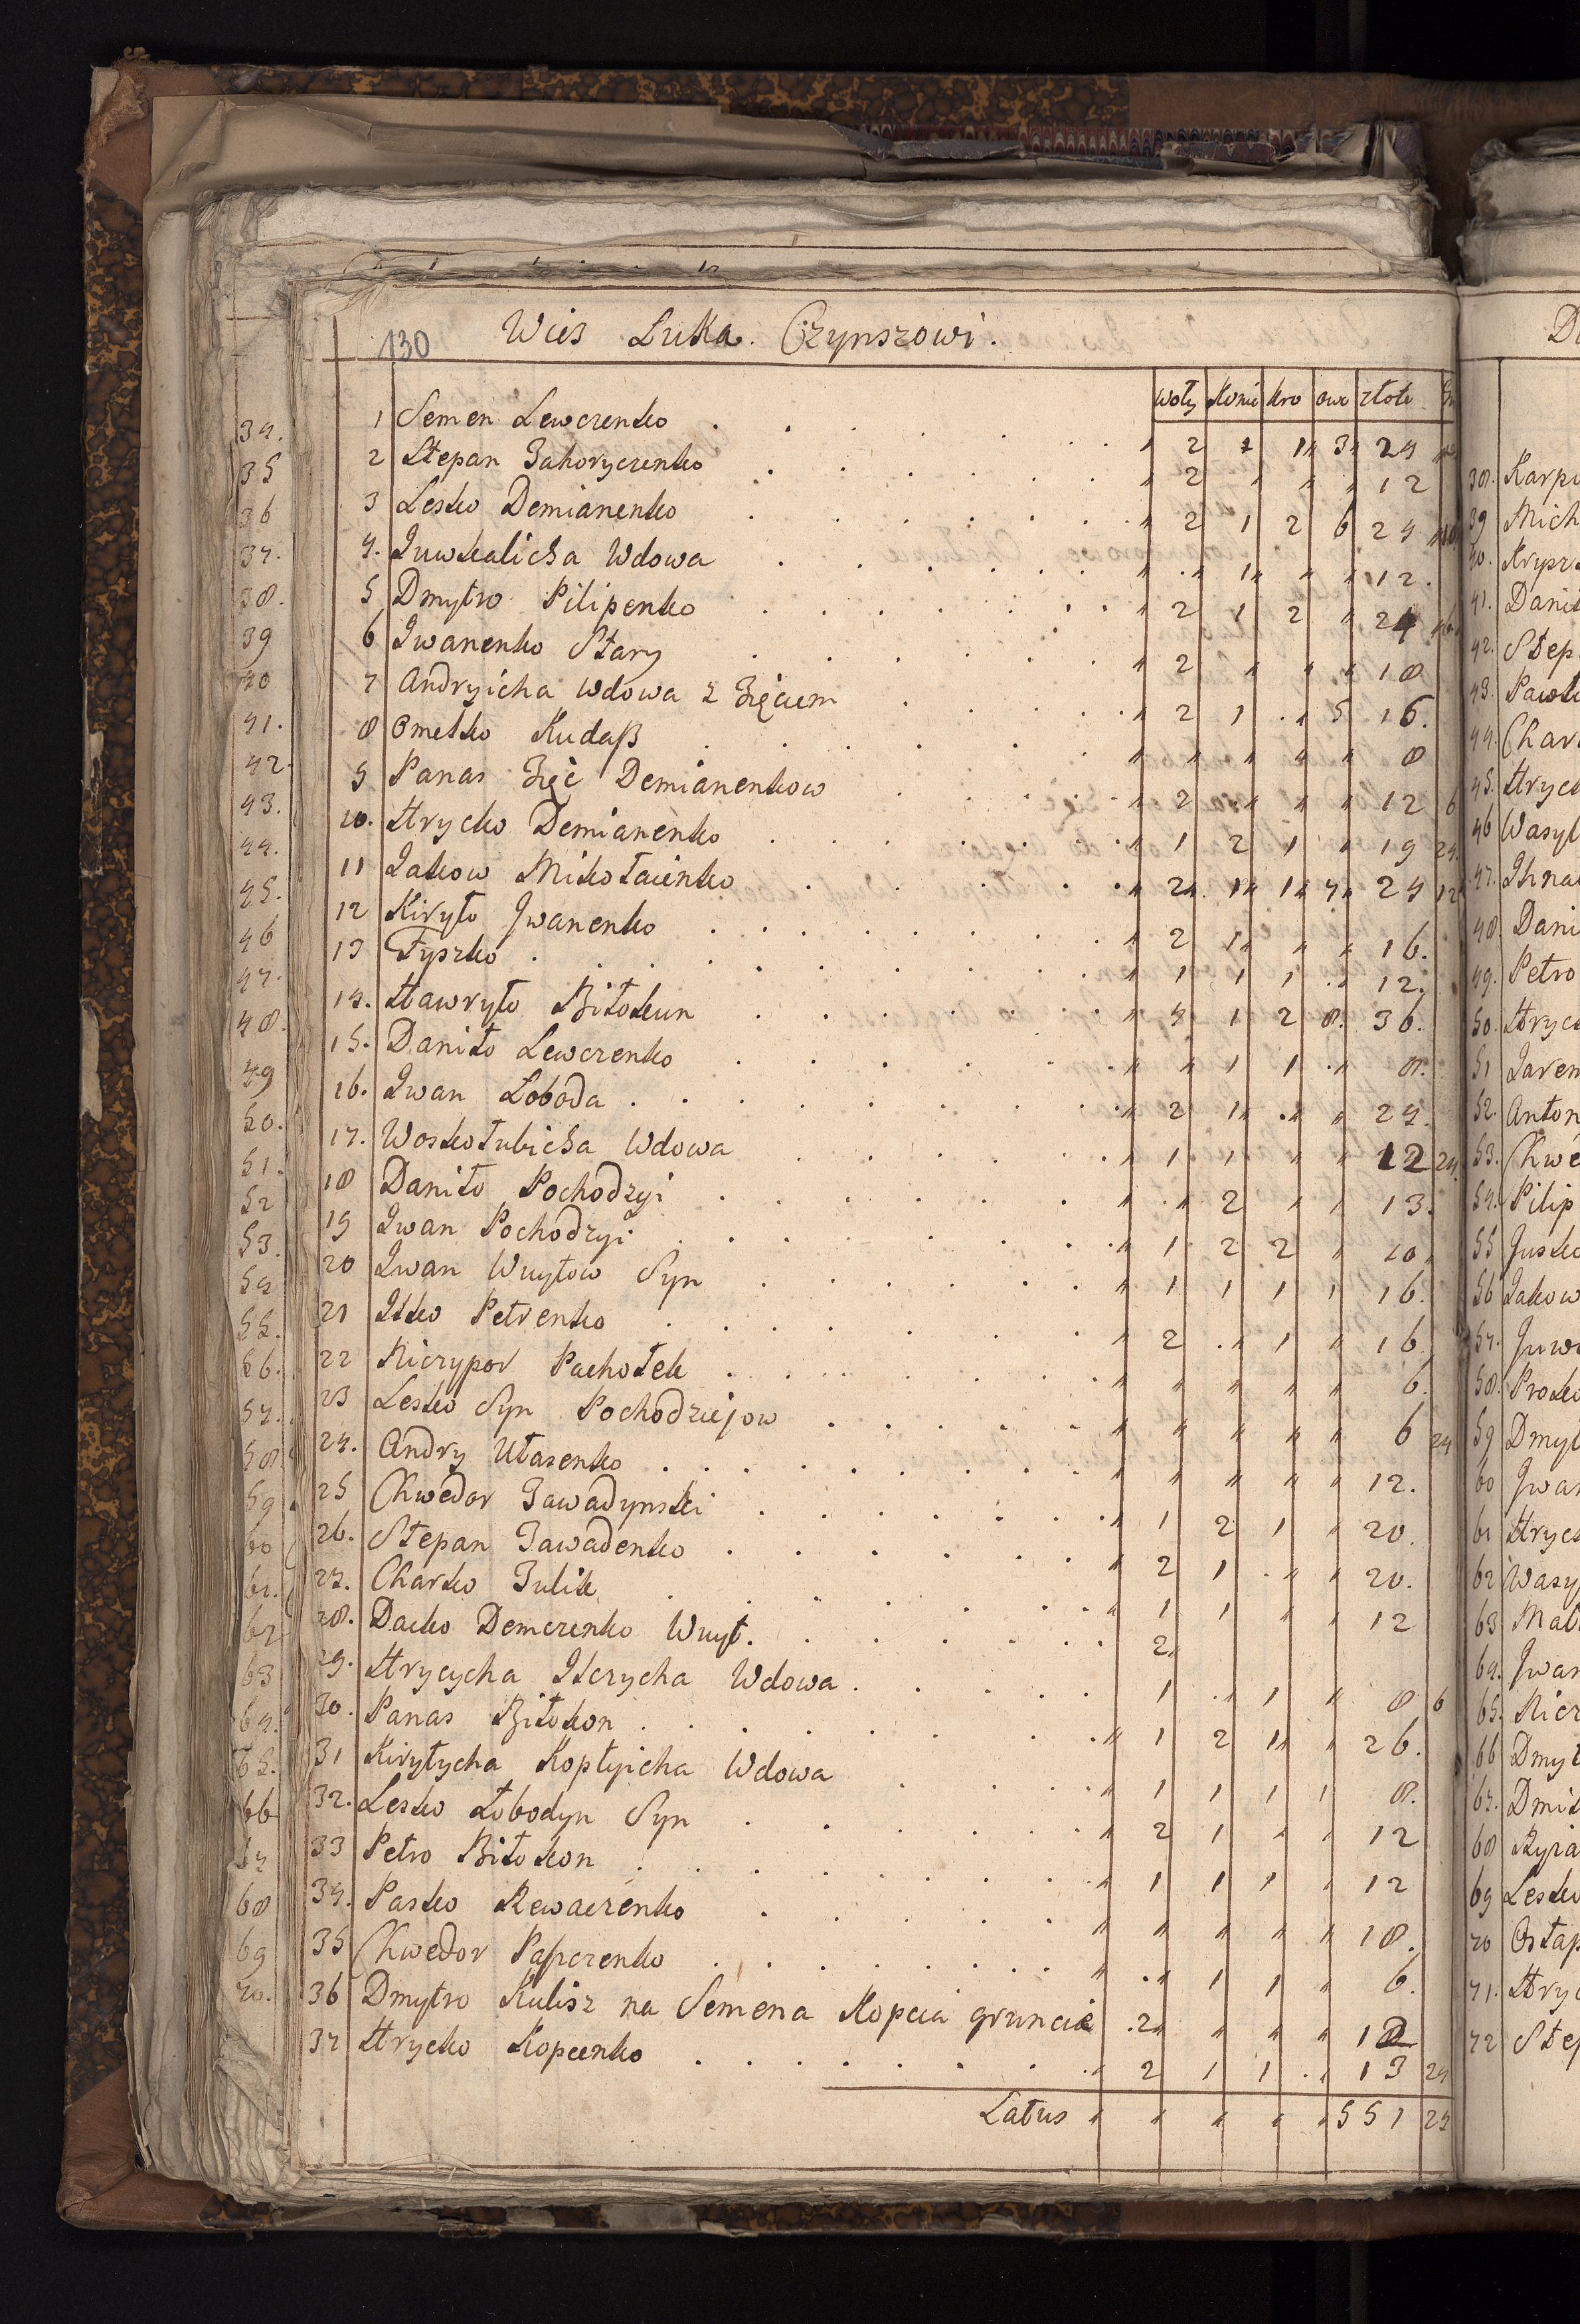 130 Wieś Luka. Czynszowi.
Woły Konie kro owc złote
1 Semen Lewczenko 2 1 1 3 24
2 Stepan Zahoryczenko 2 " " " 12
3 Lesko Demianenko 2 1 2 6 24
4. Juwkalicha Wdowa " 1 " " 12.
5 Dmytro Pilipenko 2 1 2 " 24
6 Iwanenko Stary 2 " " " 18
7 Andryicha Wdowa z Zięciem 2 1 " 5 16.
8 Omelko Kudaß " " " " 8
9 Panas Zięć Demianenkow 2 " " " 12 6
10. Hrycko Demianenko 1 2 1 " 19 24.
11 Jakow Mikołaienko 2 1 1 4 24 12
12 Kiryło Iwanenko 2 1 " " 16.
13 Tyszko 1 1 1 " 12.
14. Hawryło Biłokun 4 1 2 8. 36.
15. Daniło Lewczenko " 1 1 " 8.
16. Iwan Łoboda 2 1 " " 24.
17. Woskołubicha Wdowa 1 1 " " 12 24.
18 Daniło Pochodzyi " 2 " " 13.
19 Iwan Pochodzyi 1 2 2 " 20
20 Iwan Wuytow Syn 1 1 1 1 16.
21 Ilko Petrenko 2 " 1 " 16
22 Niczypor Pachołek " " " " 6.
23 Lesko Syn Pochodziejow " " " " 6 24
24. Andry Ułasenko " " " " 12.
25 Chwedor Zawadynski 1 2 1 " 20.
26. Stepan Zawadenko 2 1 " " 20.
27. Charko Zulik 1 1 " " 12
28. Dacko Demczenko Wuyt. 2
29. Hrycycha Ilczycha Wdowa 1 " 1 " 8 6
30. Panas Biłokon 1 2 1 " 26.
31 Kiryłycha Kopłyicha Wdowa 1 1 1 1 8.
32. Lesko Łobodyn Syn 2 1 " " 12
33 Petro Biłokon 1 1 1 " 12
34. Pasko Rewaczenko " " " " 18.
35 Chwedor Papczenko " 1 1 " 6.
36 Dmytro Kulisz na Semena Kopcia gruncie 2 " " " 12
37 Hrycko Kopcenko 2 1 1 " 13 24
Latus " " " " 551 24
34.
35
36
37.
38.
39
40
41.
42.
43.
44.
45.
46
47.
48.
49
50.
51.
52
53.
54
55.
56.
57.
58.
59
60
61.
62
63
64.
65.
66
67
68
69
70.
39 Mich
41. Danil
42. Step
46 Wasyl
48. Dani
49. Petro
50. Hryc
52. Anton
54. Pilip
56 Jakow
59 Dmyt
60 Iwan
61 Hryc
62 Wasy
64. Iwan
66 Dmyt
69 Lesko
70 Ostap
71. Hryc
72 Step